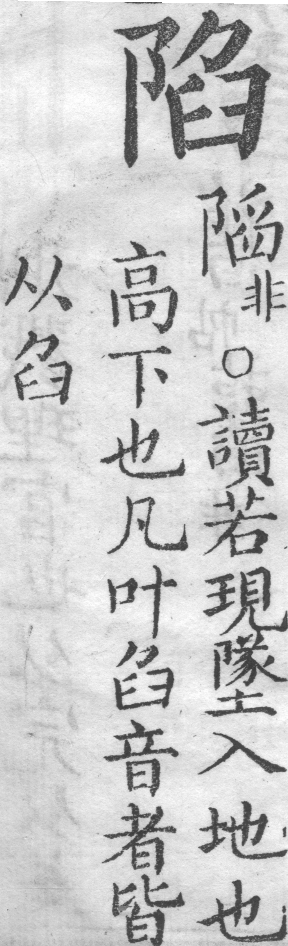 陷
䧟非○讀若現墜入地也
高下也凡叶臽音者皆
从臽